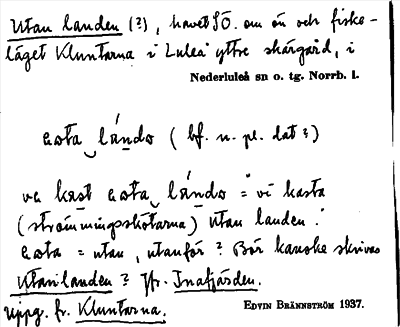 Utan landen (?), havet SÖ. om ön och fiske-
läget Kluntarna i Luleå yttre skärgård, i
Nederluleå sn o. tg. Norrb. l.
aota lándo (bf. n. pl. dat?)
va kast aota lándo = "vi kasta
(strömmingsskötarna) utan landen."
aota = utan, utanför? Bör kanske skrivas
Utanlanden? Jfr. Inafjärden.
Uppg. fr. Kluntarna. EDVIN BRÄNNSTRÖM 1937.